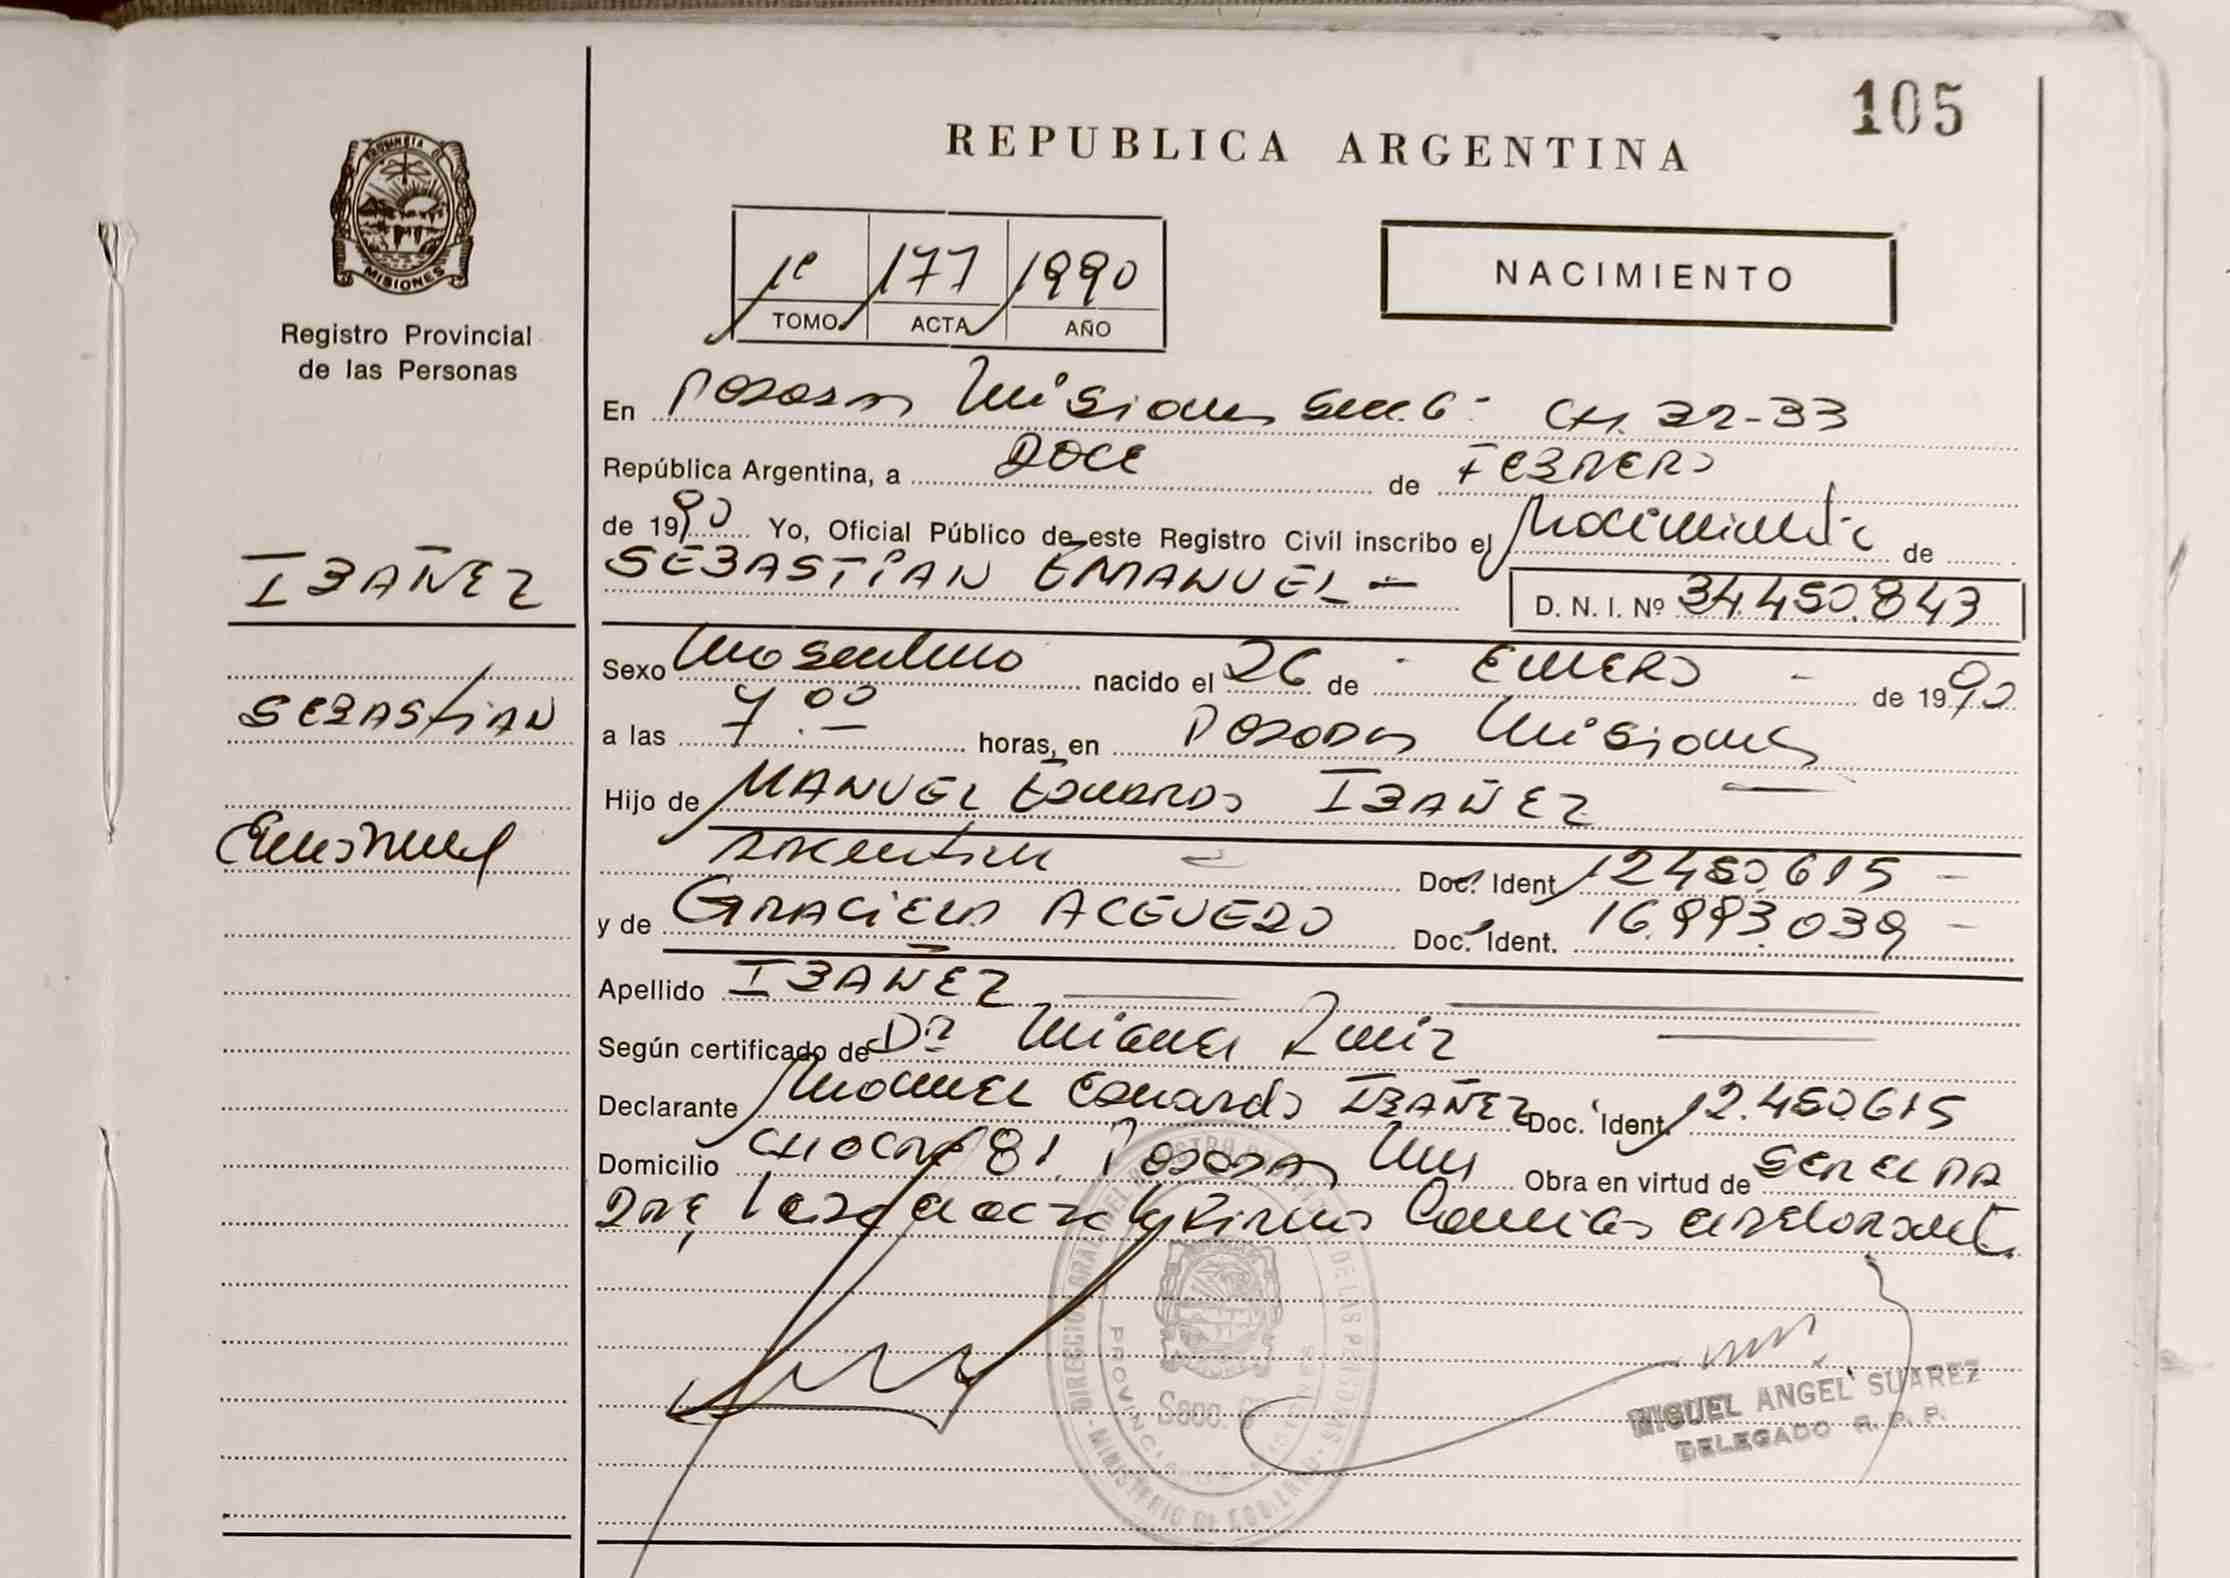 105
REPUBLICA ARGENTINA
PROVINCIA D
MISIONES
Registro Provincial
de las Personas
1º 177 1990
TOMO ACTA AÑO
NACIMIENTO
En Posadas Misiones Secc. 6 - CH. 32-33
República Argentina, a DOCE de FEBRERO
de 1990 Yo, Oficial Público de este Registro Civil inscribo el Nacimiento de
IBAÑEZ
SEBASTIAN EMANUEL -
D. N. I. Nº 34.450.843
Sexo Masculino nacido el 26 de - ENERO - de 1990
SEBASTIAN
a las 7.00 horas, en Posadas Misiones
Hijo de MANUEL EDUARDO IBAÑEZ
Emanuel
Argentina Doc. Ident. 12.450.615 -
y de GRACIELA ACEVEDO Doc. Ident. 16.993.039 -
Apellido IBAÑEZ
Según certificado de Dr. Miguel Ruiz
Declarante Manuel Eduardo IBAÑEZ Doc. Ident. 12.450.615
Domicilio 81 Posadas Mnes Obra en virtud de SER EL PA
DRE, Leida el acta la Firma Conmigo el declarante
DIRECCION GRAL. DEL REGISTRO DE LAS PERSONAS
MINISTERIO DE GOBIERNO
PROVINCIA MISIONES
Secc. 6
MIGUEL ANGEL SUAREZ
DELEGADO R. P. P.